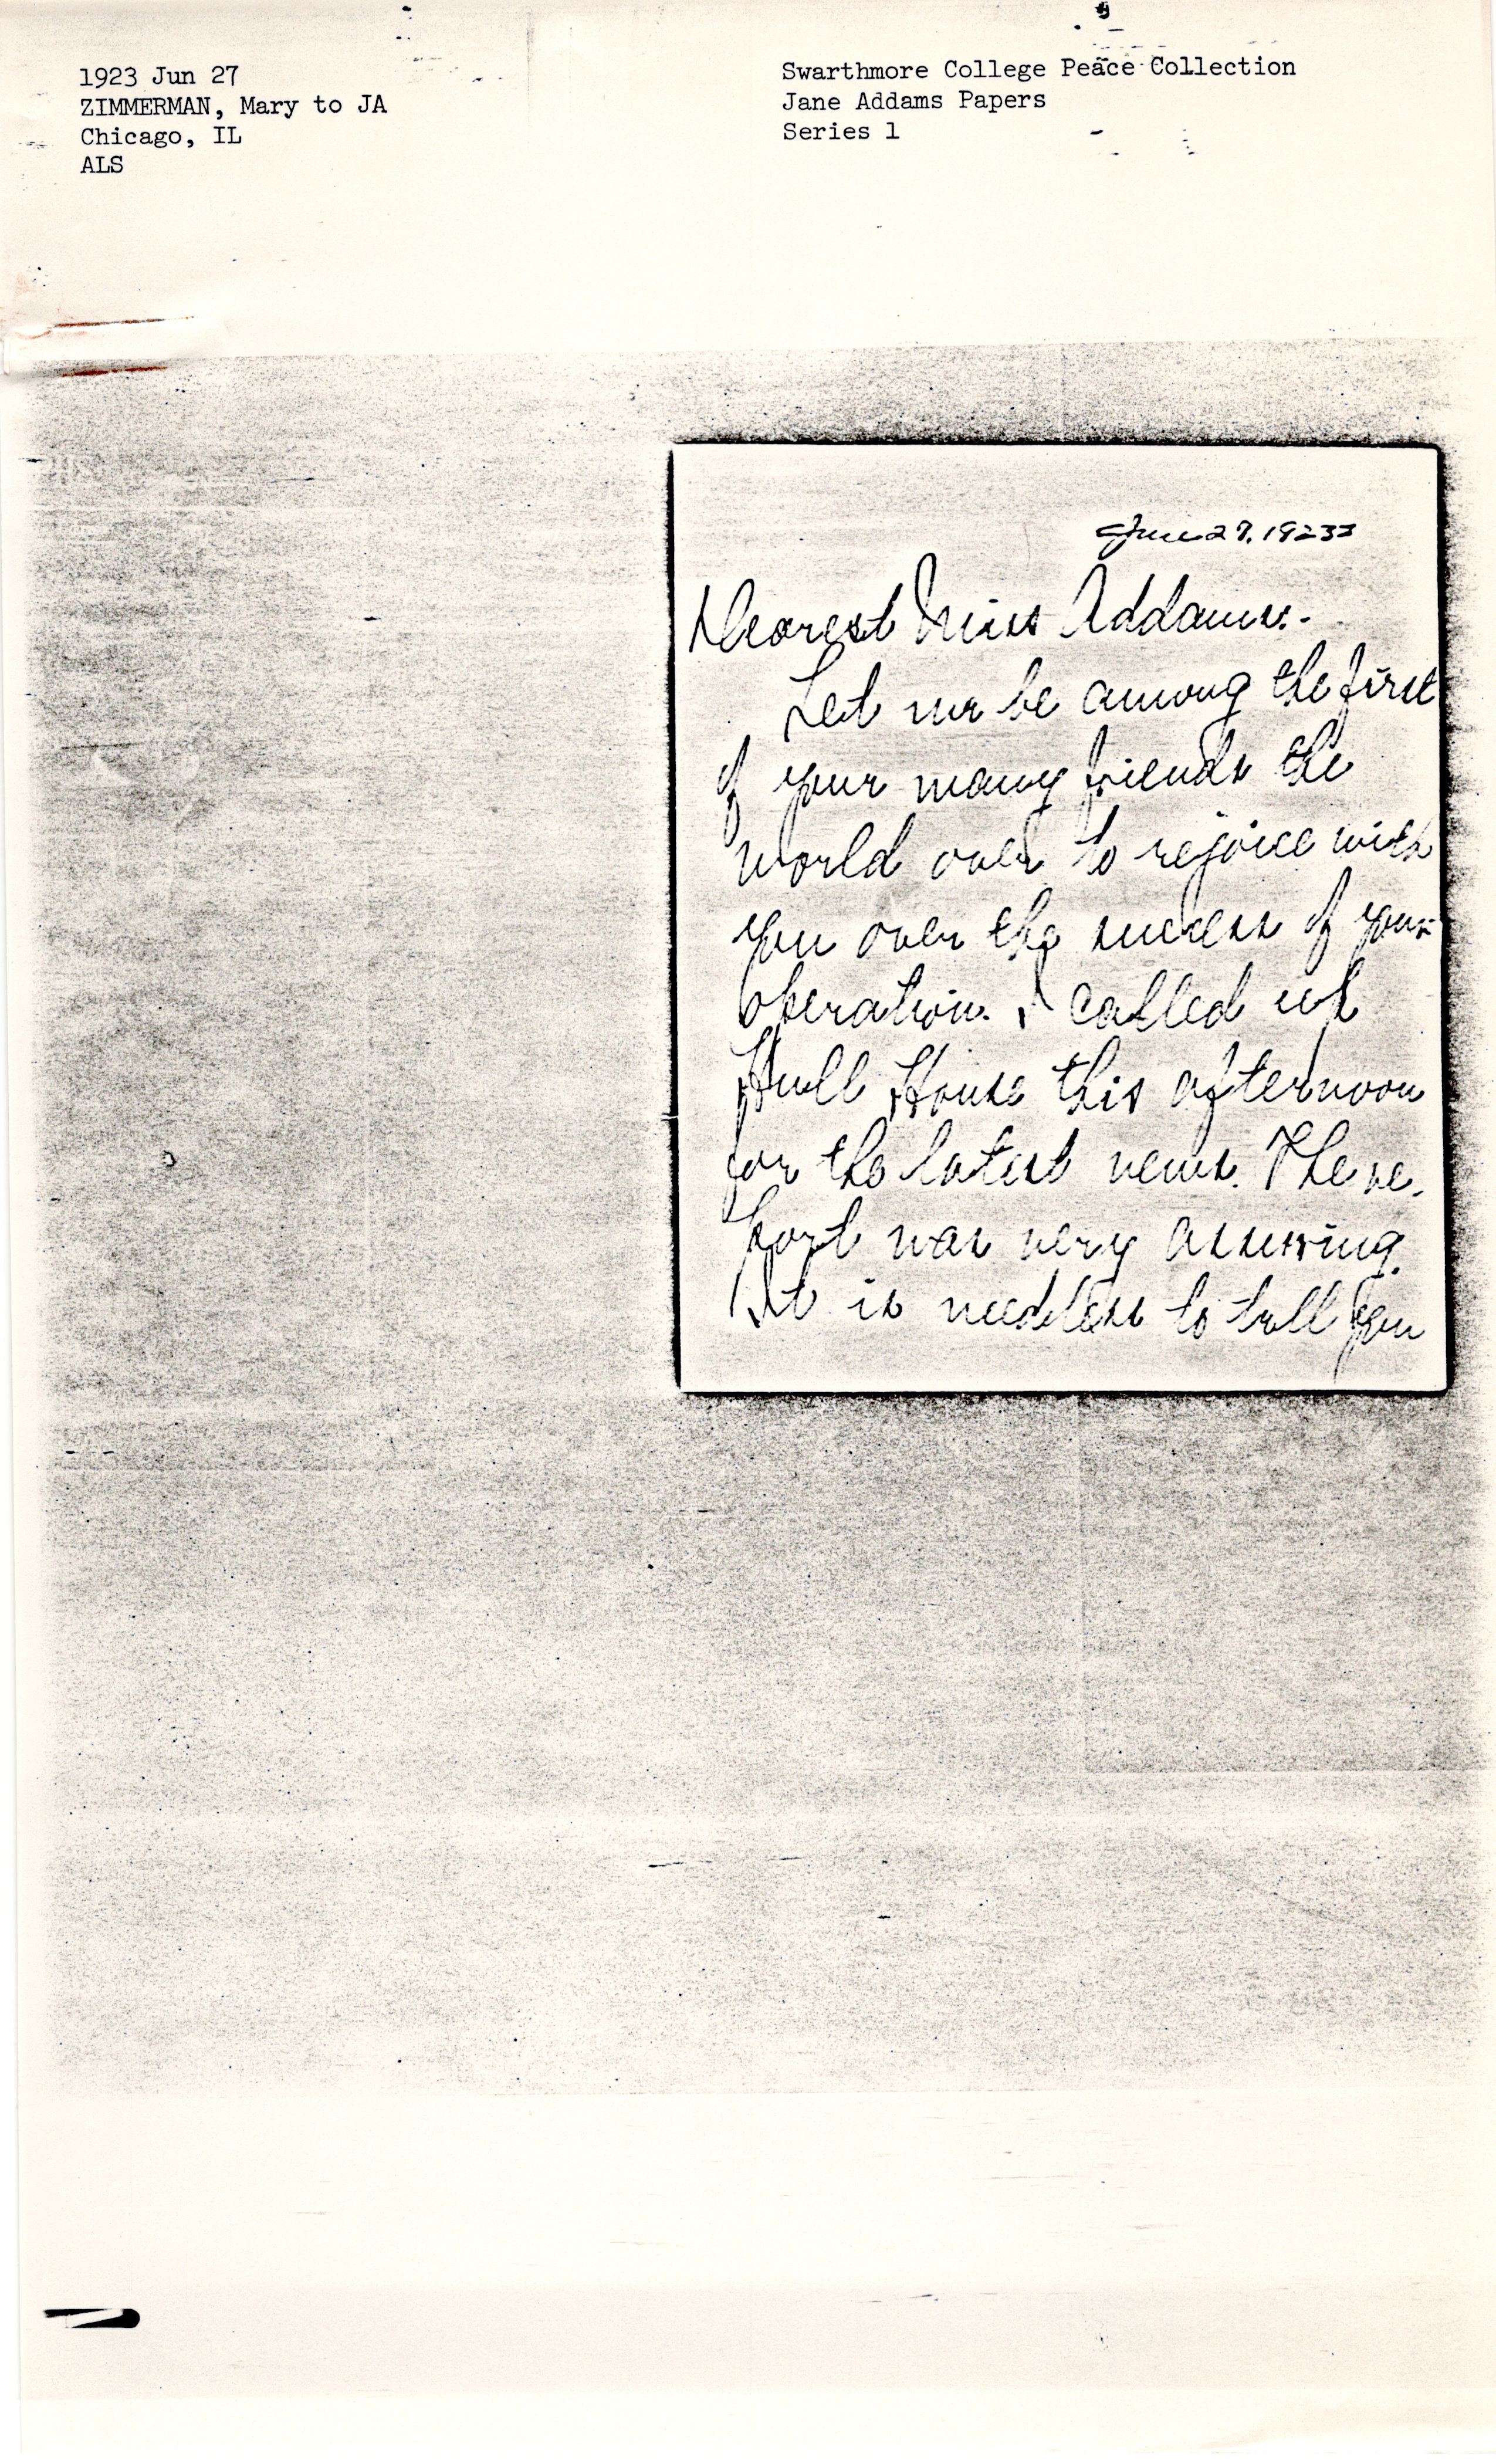 1923 Jun 27
ZIMMERMAN, Mary to JA
Chicago, IL
ALS
Swarthmore College Peace Collection
Jane Addams Papers
Series 1
June 27, 1923
Dearest Miss Addams:-
Let me be among the first
of your many friends the
world over to rejoice with
you over the success of your
operation. I called up
Hull House this afternoon
for the latest news. The re-
port was very assuring.
It is needless to tell you